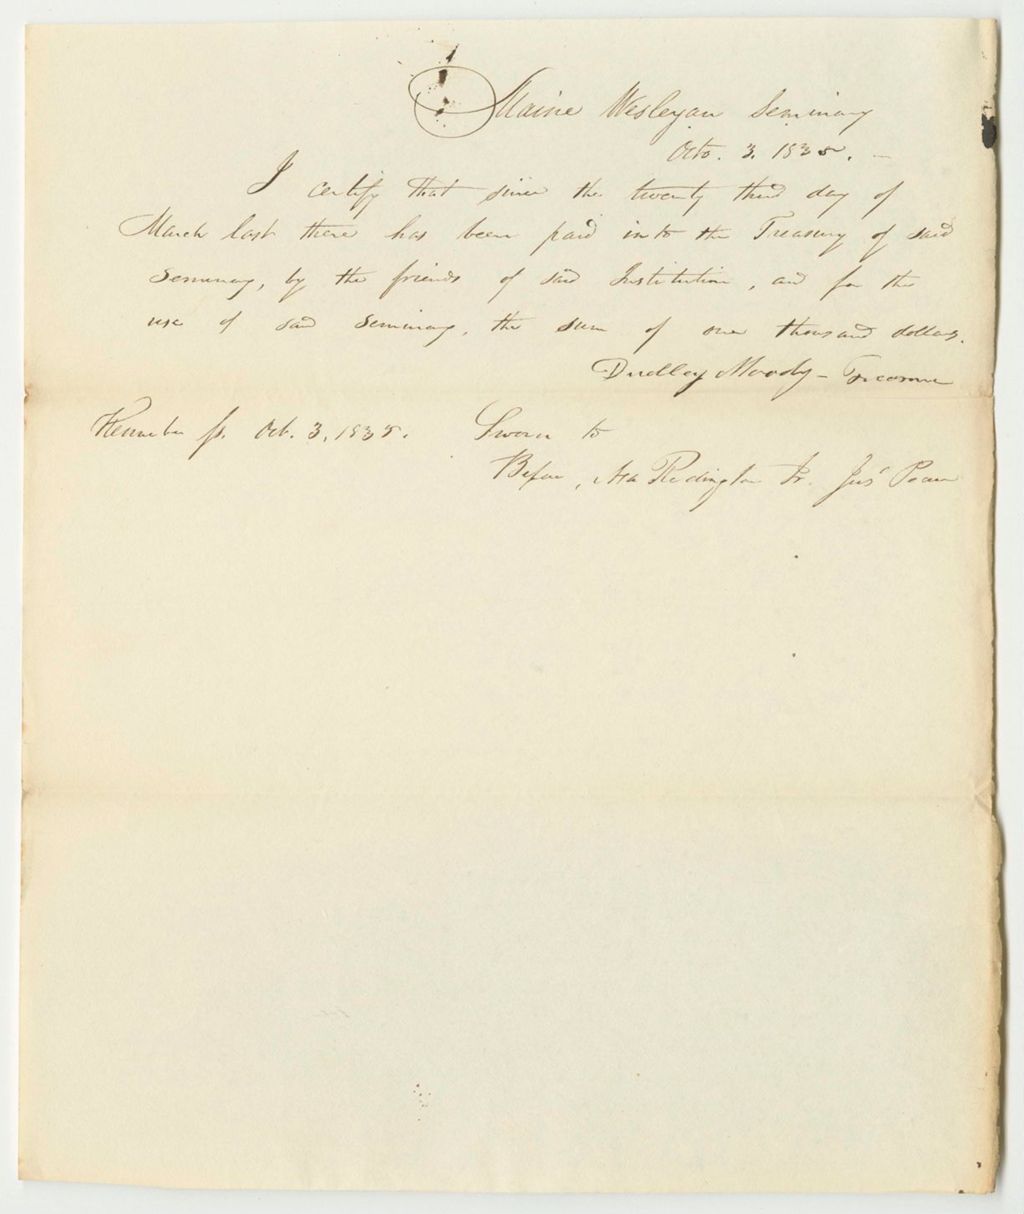 Maine Wesleyan Seminary
Octo. 3. 1835. –
I certify that since the twenty third day of
March last there has been paid into the Treasury of said
Seminary, by the friends of said Institution, and for the
use of said Seminary, the sum of one thousand dollars.
Dudley Moody – Treasurer
Kennebec ss. Oct. 3, 1835. Sworn to
Before, Asa Redington Jr. Jus. Peace